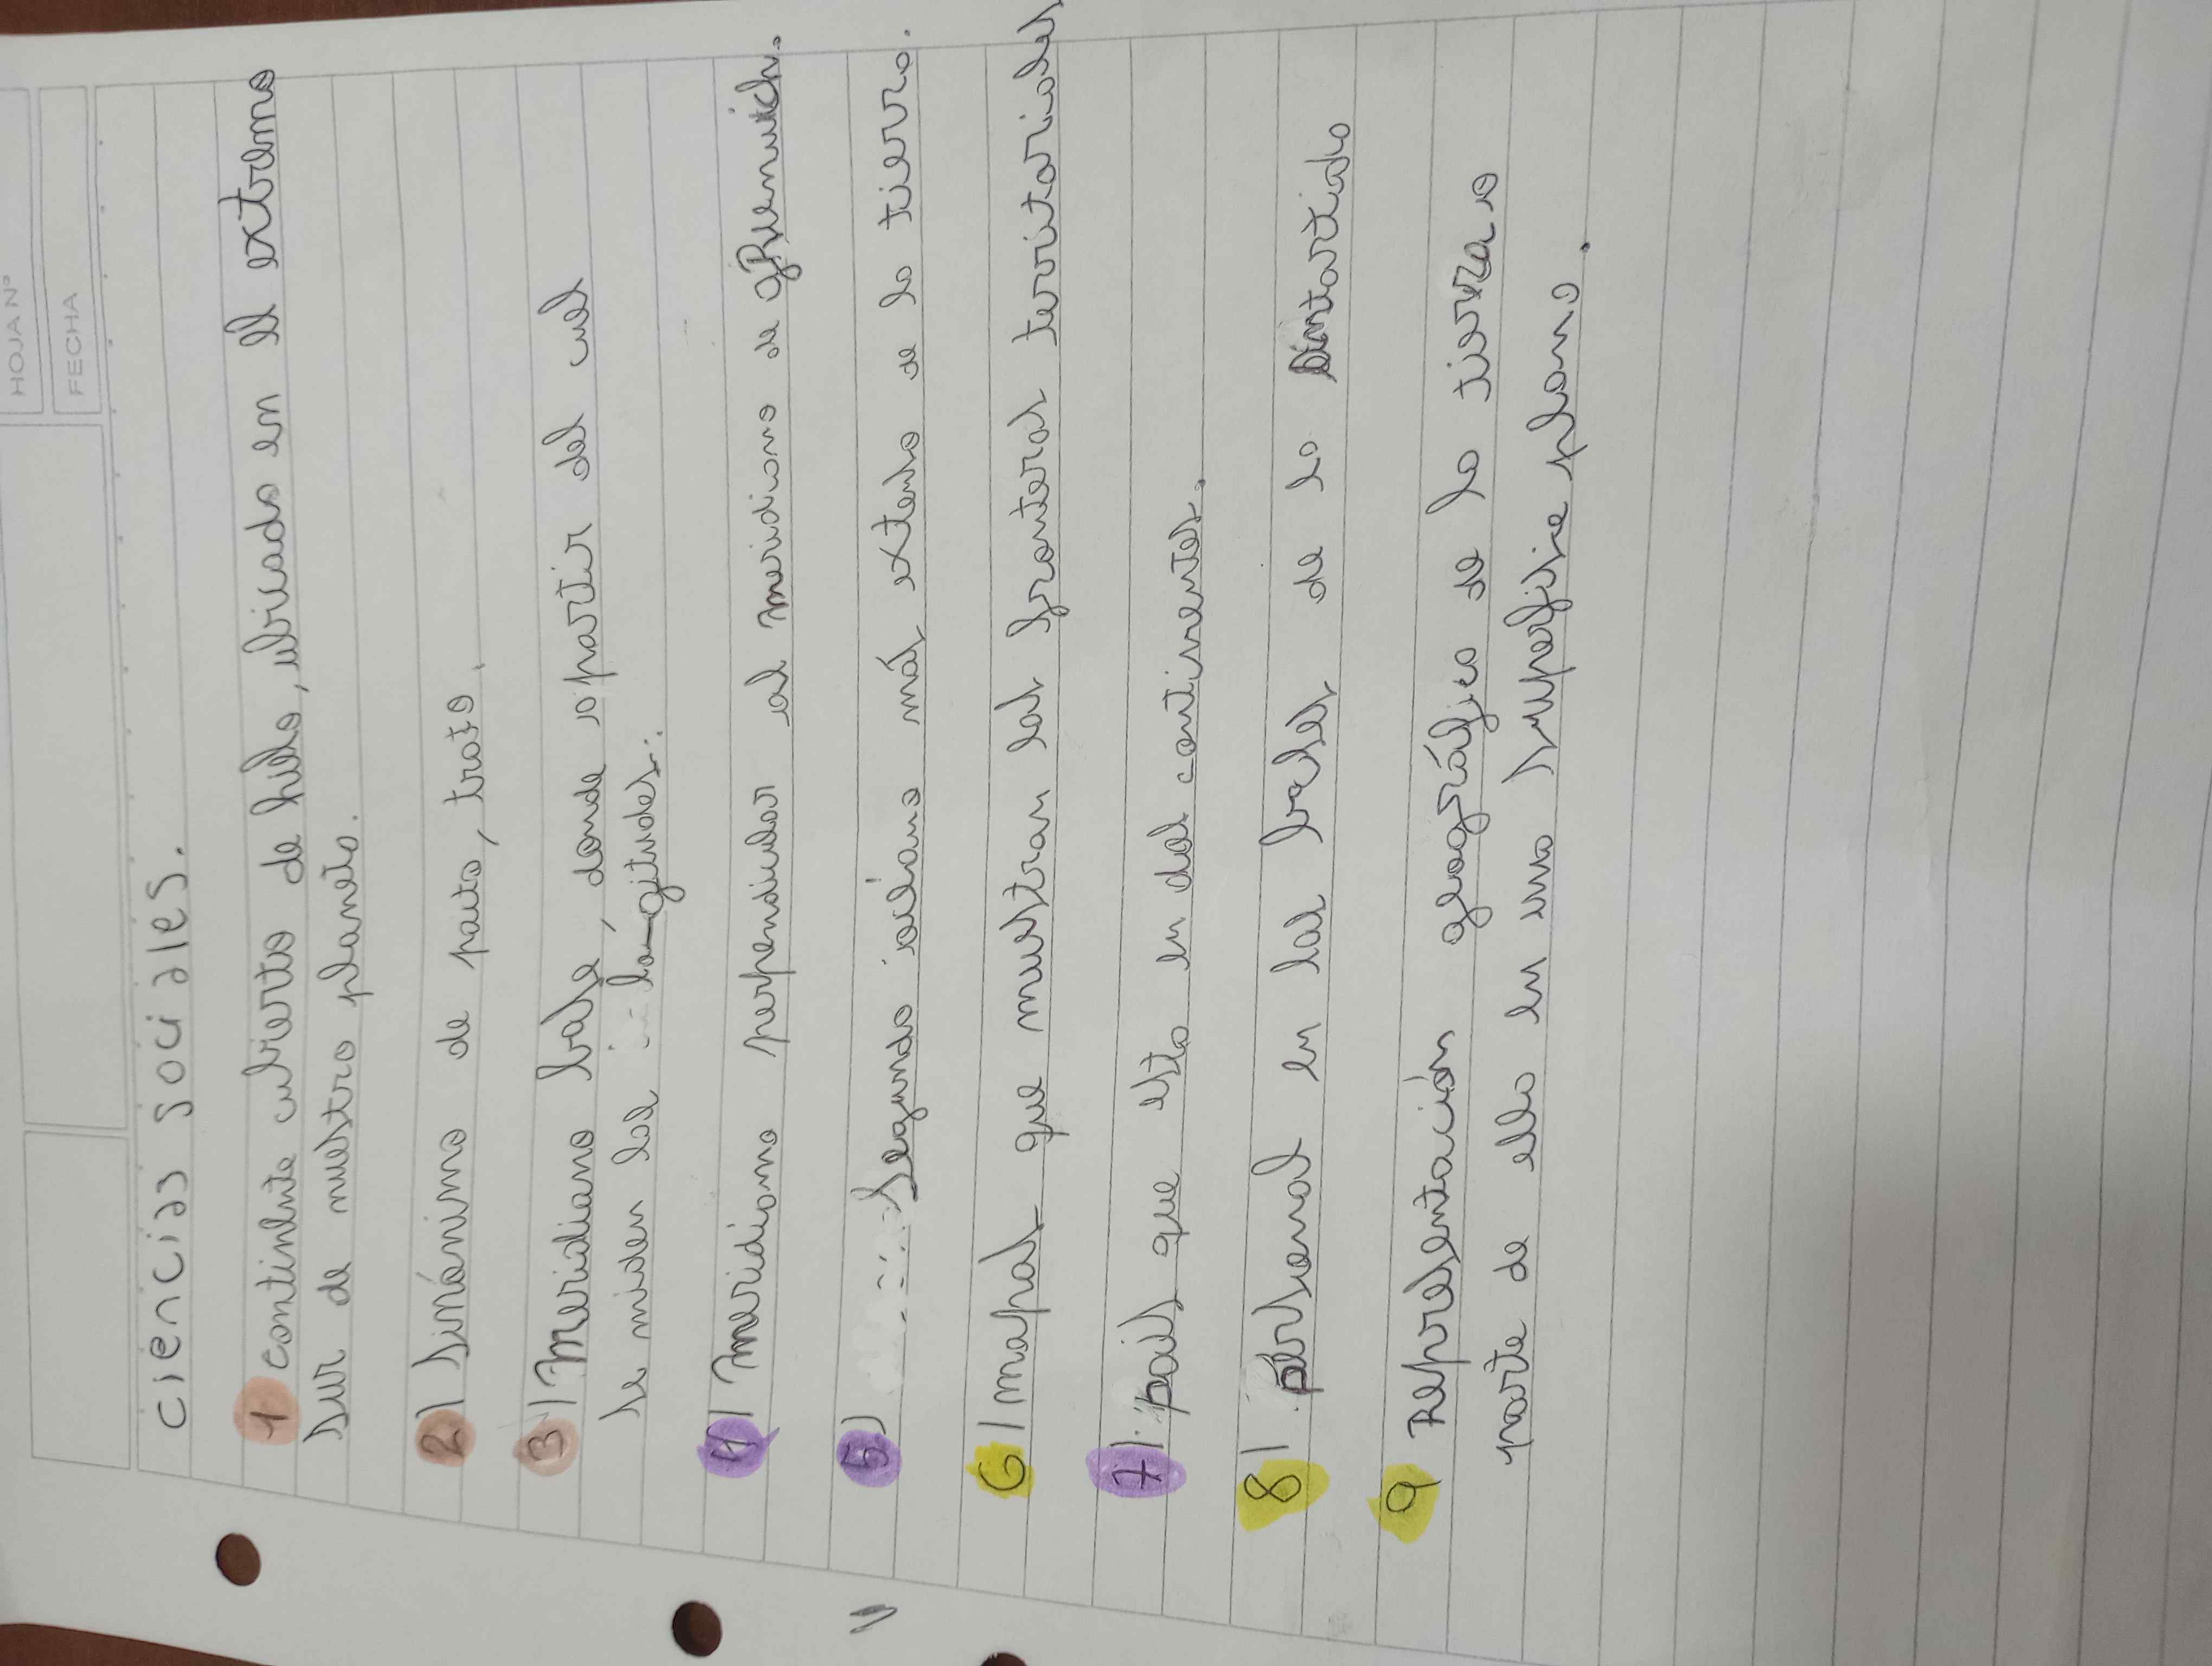 HOJA Nº
FECHA
ciencias sociales.
1 continente cubierto de hielo, ubicado en el extremo
sur de nuestro planeta.
2) sinónimo de pacto, trato.
3) Meridiano base, donde a partir del cual
se miden las longitudes.
4) Meridiano perpendicular al meridiano de gReenwich.
5) Segundo océano más extenso de la tierra.
6) mapas que muestran las fronteras territoriales
7) país que esta en dos continentes.
8) personas en las bases de la Antartida
9 Representación geográfica de la tierra o
parte de ella en una superfisie plana.